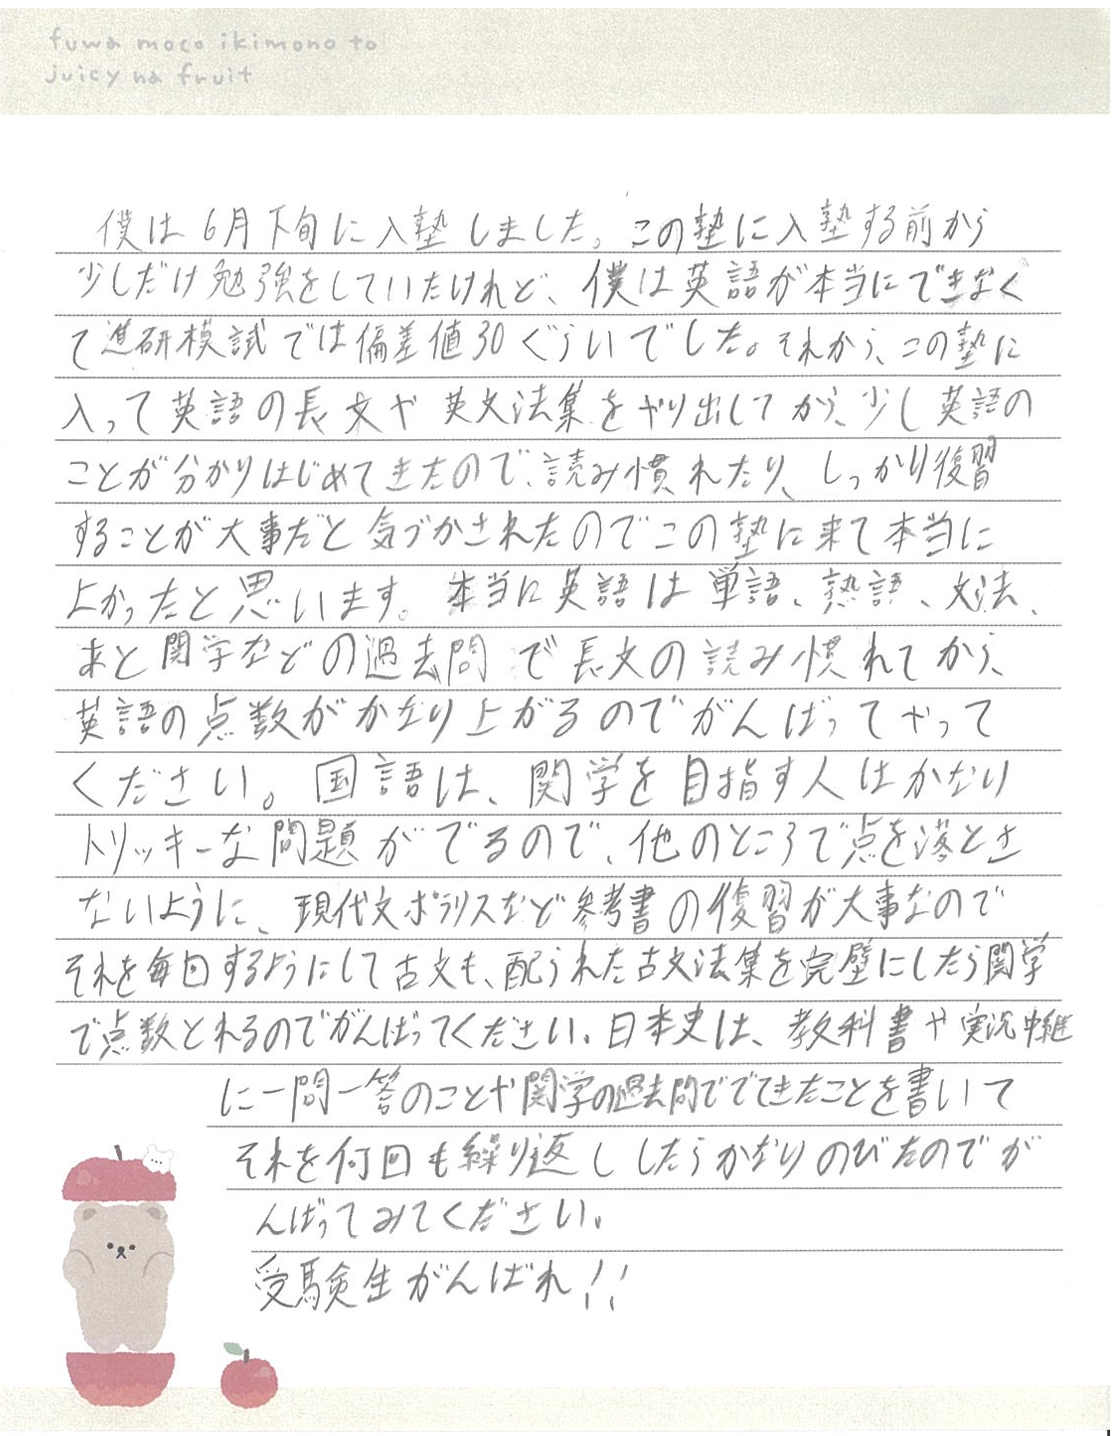 fuwa moco ikimono to
juicy na fruit
僕は6月下旬に入塾しました。この塾に入塾する前から
少しだけ勉強をしていたけれど、僕は英語が本当にできなく
て進研模試では偏差値30ぐらいでした。それから、この塾に
入って英語の長文や英文法集をやり出してから、少し英語の
ことが分かりはじめてきたので、読み慣れたり、しっかり復習
することが大事だと気づかされたのでこの塾に来て本当に
よかったと思います。本当に英語は単語、熟語、文法、
あと関学などの過去問で長文の読み慣れてから、
英語の点数がかなり上がるのでがんばってやって
ください。国語は、関学を目指す人はかなり
トリッキーな問題がでるので、他のところで点を落とさ
ないように、現代文ポラリスなど参考書の復習が大事なので
それを毎回するようにして古文も、配られた古文法集を完璧にしたら関学
で点数とれるのでがんばってください。日本史は、教科書や実況中継
に一問一答のことや関学の過去問ででてきたことを書いて
それを何回も繰り返ししたらかなりのびたのでが
んばってみてください。
受験生がんばれ!!